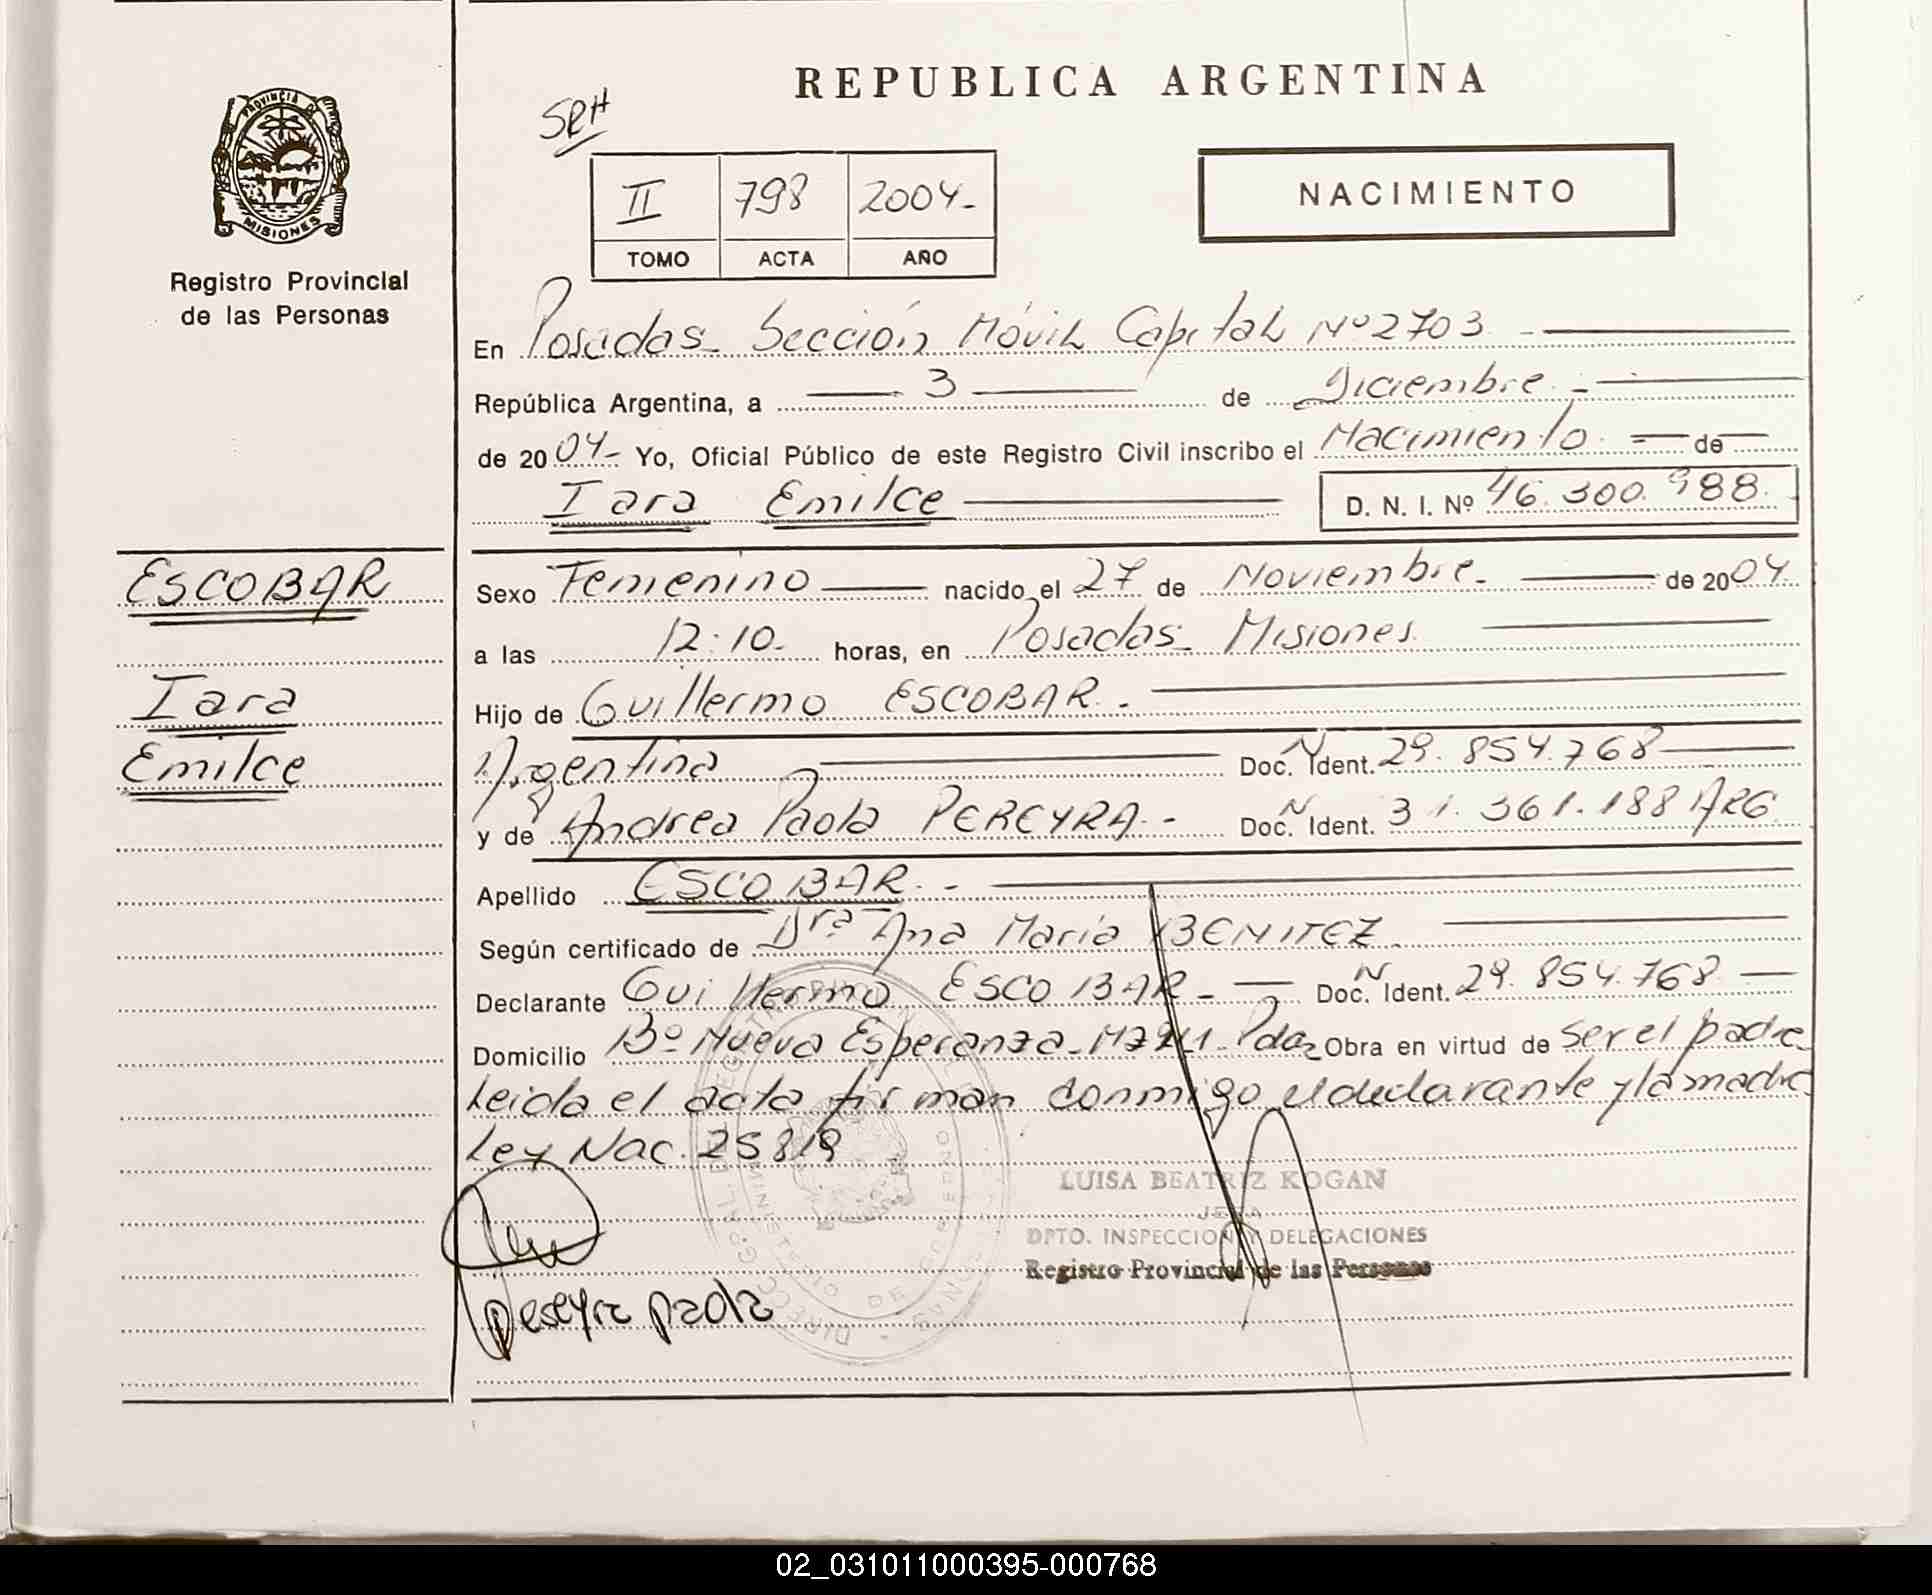 REPUBLICA ARGENTINA
SRH
PROVINCIA D
MISIONES
Registro Provincial
de las Personas
II 798 2004-
TOMO ACTA AÑO
NACIMIENTO
En Posadas- Sección Móvil Capital Nº 2703 -
República Argentina, a 3 de Diciembre -
de 2004- Yo, Oficial Público de este Registro Civil inscribo el Nacimiento - de
Iara Emilce D. N. I. Nº 46.300.988.
ESCOBAR
Iara
Emilce
Sexo Femenino nacido el 27 de Noviembre- de 2004.
a las 12:10- horas, en Posadas- Misiones
Hijo de Guillermo ESCOBAR.-
Argentina Doc. N Ident. 29.854.768
y de Andrea Paola PEREYRA.- Doc. N Ident. 31.361.188 ARG
Apellido ESCOBAR.-
Según certificado de Dra Ana María BENITEZ
Declarante Guillermo ESCOBAR- Doc. N Ident. 29.854.768
Domicilio Bº Nueva Esperanza- Obra en virtud de ser el padre-
Leida el acta firman conmigo el declarante y la madre
Ley Nac. 25819
LUISA BEATRIZ KOGAN
JEFA
DPTO. INSPECCION Y DELEGACIONES
Registro Provincial de las Personas
Pereyra Paola
MINISTERIO DE GOBIERNO
02_031011000395-000768